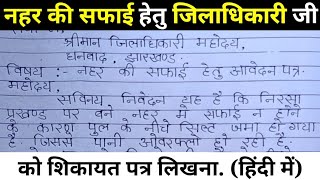 नहर की सफाई हेतु जिलाधिकारी जी
श्रीमान जिलाधिकारी महोदय,
धनबाद, झारखण्ड.
विषय :- नहर की सफाई हेतु आवेदन पत्र.
महोदय,
सविनय निवेदन यह है कि निरसा
प्रखण्ड पर बने नहर में सफाई न होने
के कारण पुल के नीचे सिल्ट जमा हो गया
है. जिससे पानी ओवरफ्लो हो रही है.
को शिकायत पत्र लिखना. (हिंदी में)